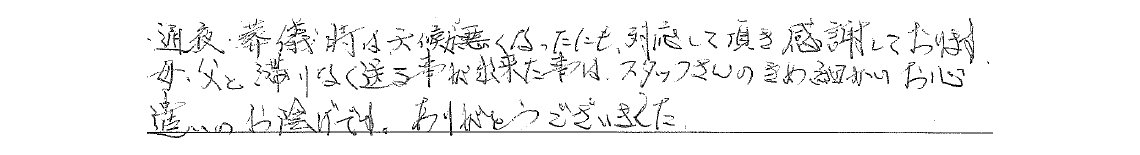 ・通夜・葬儀時は天候悪くなったにも、対応して頂き感謝しております。
母・父と滞りなく送る事が出来た事は、スタッフさんのきめ細かいお心
遣いのお陰げです。ありがとうございました。